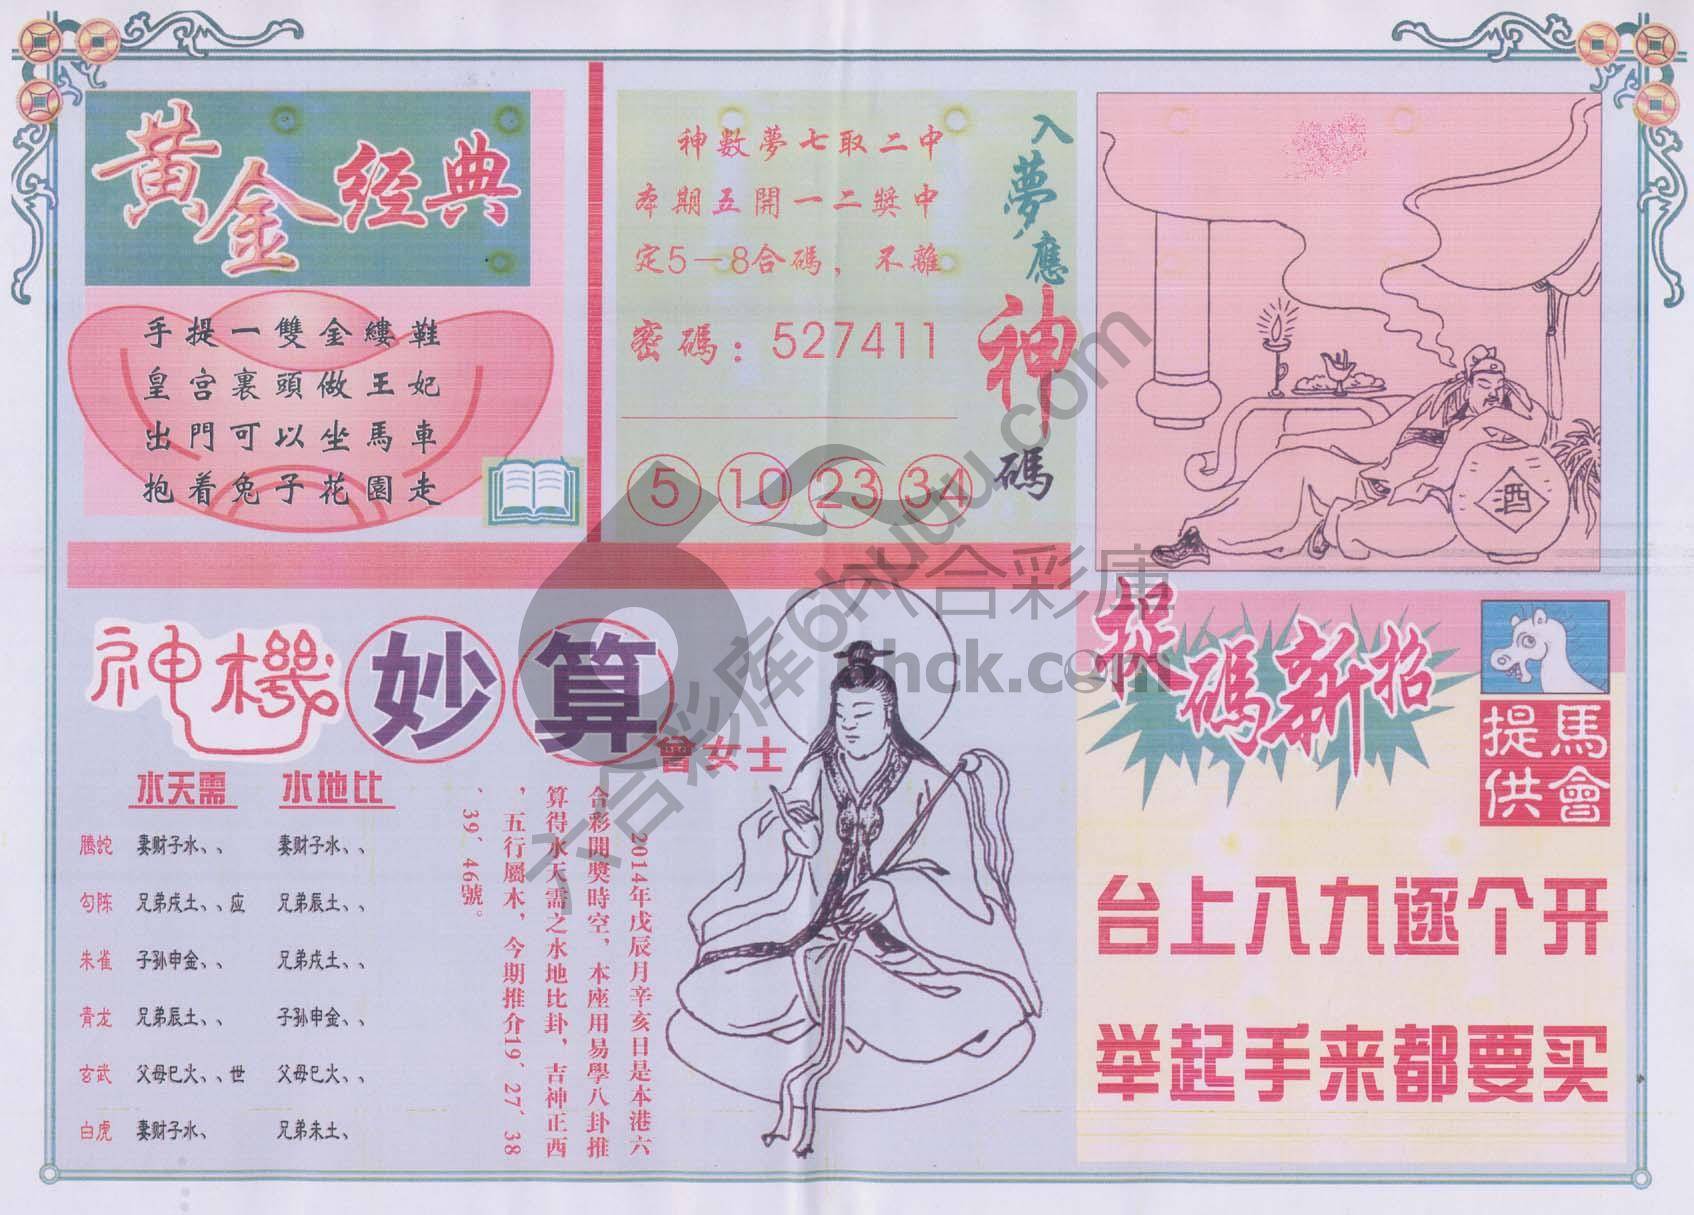 黄金经典
手提一雙金縷鞋
皇宫裏頭做王妃
出門可以坐馬車
抱着兔子花園走
神數夢七取二中
本期五開一二獎中
定5－8合碼，不離
密碼：527411
5 10 23 34
入夢應神碼
酒
神機妙算
曾女士
水天需 水地比
騰蛇 妻财子水、、 妻财子水、、
勾陈 兄弟戌土、、应 兄弟辰土、、
朱雀 子孙申金、、 兄弟戌土、、
青龙 兄弟辰土、、 子孙申金、、
玄武 父母巳火、、世 父母巳火、、
白虎 妻财子水、 兄弟未土、
2014年戊辰月辛亥日是本港六
合彩開獎時空，本座用易學八卦推
算得水天需之水地比卦，吉神正西
，五行屬木，今期推介19、27、38
、39、46號。
捉碼新招
馬會
提供
台上八九逐个开
举起手来都要买
六合彩库6huuu.com
六合彩庫